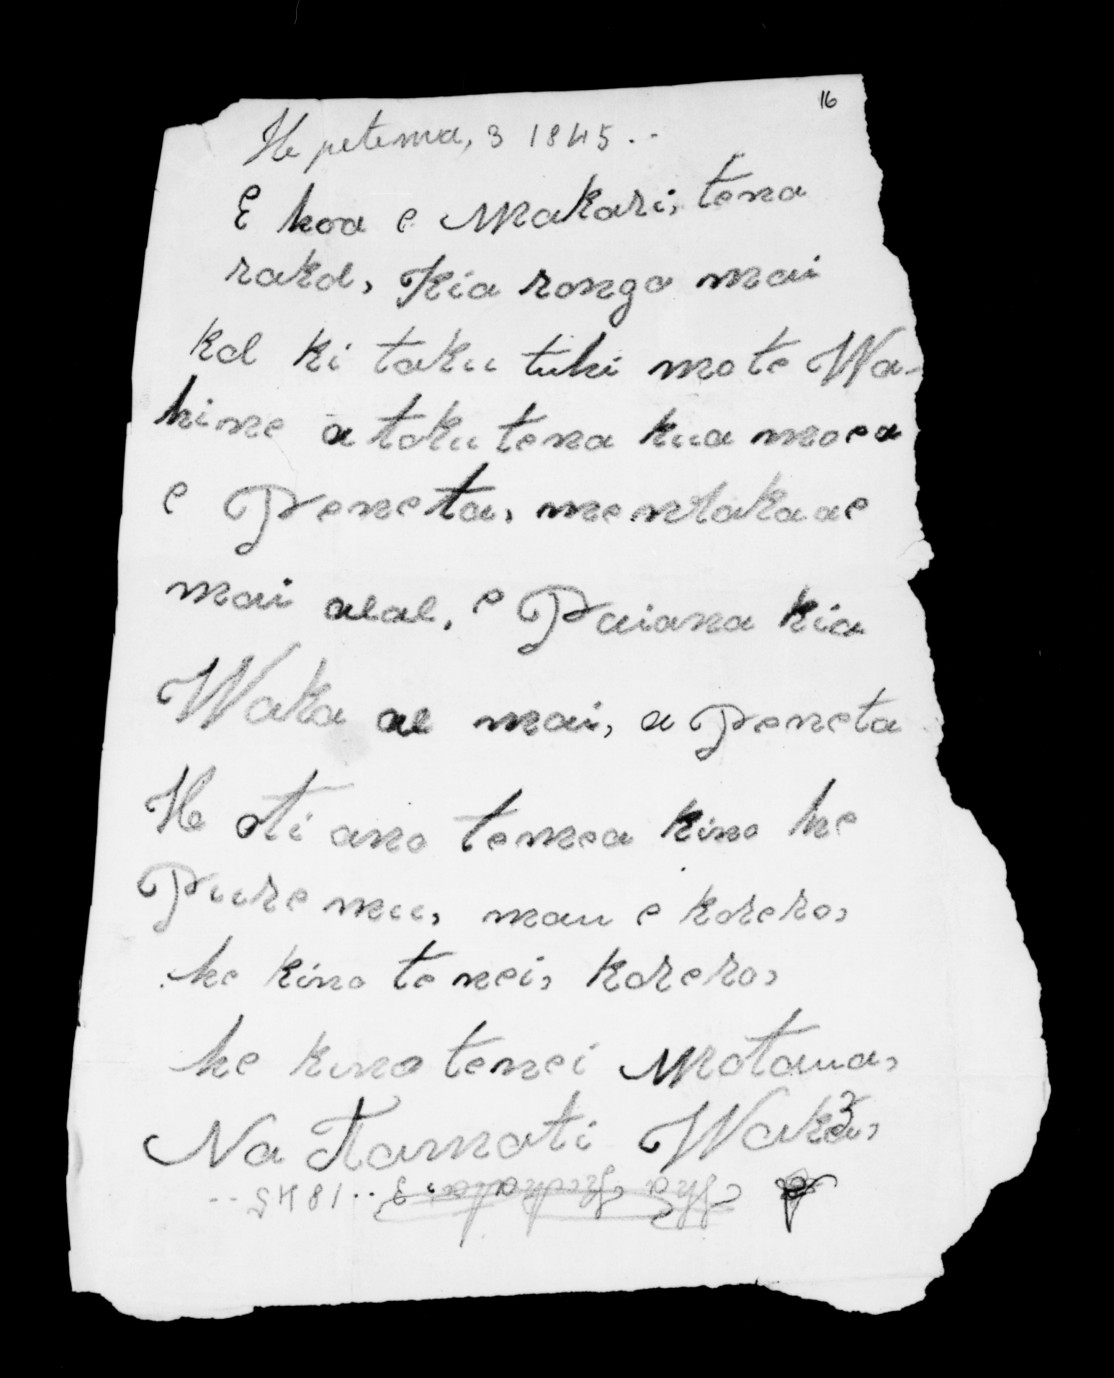 16
Hepetema, 3 1845..
E hoa e Makari; tena
rakoe, Kia rongo mai
koe ki taku tuhi mo te Wa-
hine a toku tena kua moea
e Peneta, me wakaae
mai aeae, e Paiana kia
Waka ae mai, a Peneta
He oti ano temea kino he
Puremu, mau e korero,
he kino tenei, korero,
he kino tenei Motaua,
Na Tamati Waka,
3
1845..